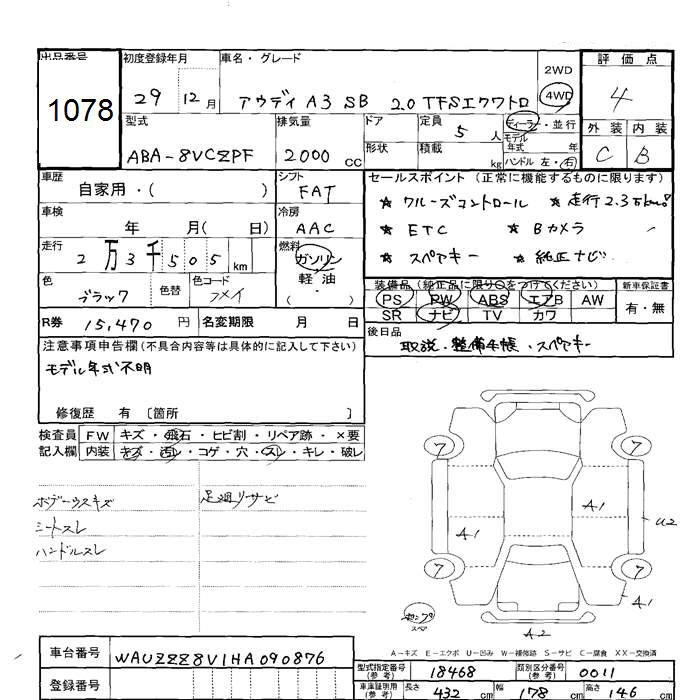 出品番号 初度登録年月 車名・グレード 2WD 評価点
1078 29 12月 アウディ A3 SB 2.0 TFSIクワトロ 4WD 4
型式 排気量 ドア 定員 5 人 ディーラー・並行 外装 内装
ABA-8VCZPF 2000 cc 形状 積載 kg モデル年式 年 ハンドル 左・右 C B
車歴 自家用・( ) シフト FAT セールスポイント (正常に機能するものに限ります)
車検 年 月( 日) 冷房 AAC ★ クルーズコントロール ★ 走行2.3万km!
★ ETC ★ Bカメラ
走行 2万3千505 km 燃料 ガソリン 軽油 ・( ) ★ スペアキー ★ 純正ナビ
色 ブラック 色替 色コード 装備品 (純正品に限り○をつけてください) 新車保証書
PS PW ABS エアB AW 有・無
SR ナビ TV カワ
R券 15,470 円 名変期限 月 日
後日品 取説・整備手帳・スペアキー
注意事項申告欄 (不具合内容等は具体的に記入して下さい)
モデル年式不明
修復歴 有 〔箇所 〕
検査員 FW キズ・飛石・ヒビ割・リペア跡・×要
記入欄 内装 キズ・汚レ・コゲ・穴・スレ・キレ・破レ
ボデーウスキズ 足廻リサビ
シートスレ
ハンドルスレ
7 7
A1 A1 U2
7 7
A1
スペア
A2
A-キズ E-エクボ U-凹み W-補修跡 S-サビ C-腐食 XX-交換済
車台番号 WAUZZZ8V1HA090876
型式指定番号 (参考) 18468 類別区分番号 (参考) 0011
登録番号
車庫証明用 (参考) 長さ 432 cm 幅 178 cm 高さ 146 cm